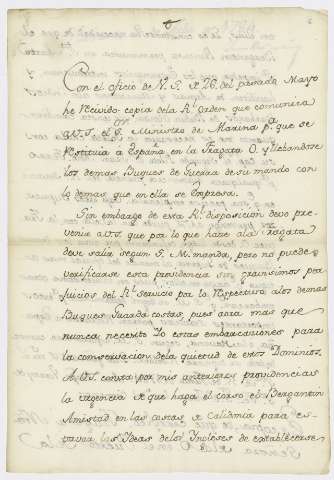 Con el oficio de V. S. de 26. del pasado Mayo
he recivido copia de la Rl. Orden que comunica
a V. S. el Sr. Ministro de Marina pa. que se
restituia a España en la Fragata O y llevandose
los demas Buques de Guerra de su mando con
lo demas que en ella se expresa.
Sin embargo de esta Rl. disposicion devo pre-
venir a V. S. que por lo que hace a la Fragata
deve salir segun S. M. manda, pero no puede
verificarse esta providencia sin gravisimos per-
juicios del Rl. servicio por lo respectivo a los demas
Buques Guarda costas, pues aora mas que
nunca necesito Yo estas embarcaciones para
la conservacion de la quietud de estos Dominios.
A V. S. consta por mis anteriores providencias
la urgencia de que haga el corso el Bergantin
Amistad en las costas de Calidonia para es-
torvar las Ideas de los Ingleses de establecerse en